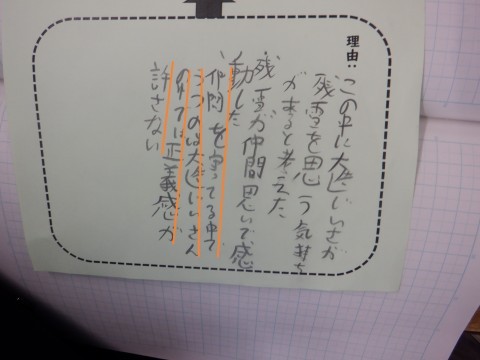 理由:
この中に大造じいさが
残雪を思う気持ち
があると考えた
残雪が仲間思いで感
動した
仲間を守ってる中で
うつのは大造じいさん
の中では正義感が
許さない